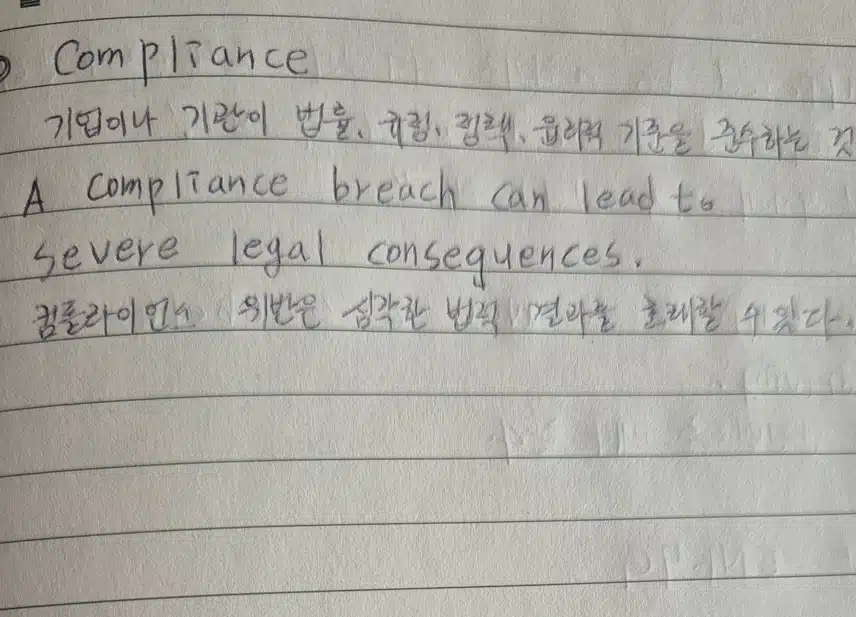 Compliance
기업이나 기관이 법률, 규정, 정책, 윤리적 기준을 준수하는 것
A compliance breach can lead to
severe legal consequences.
컴플라이언스 위반은 심각한 법적 결과를 초래할 수 있다.